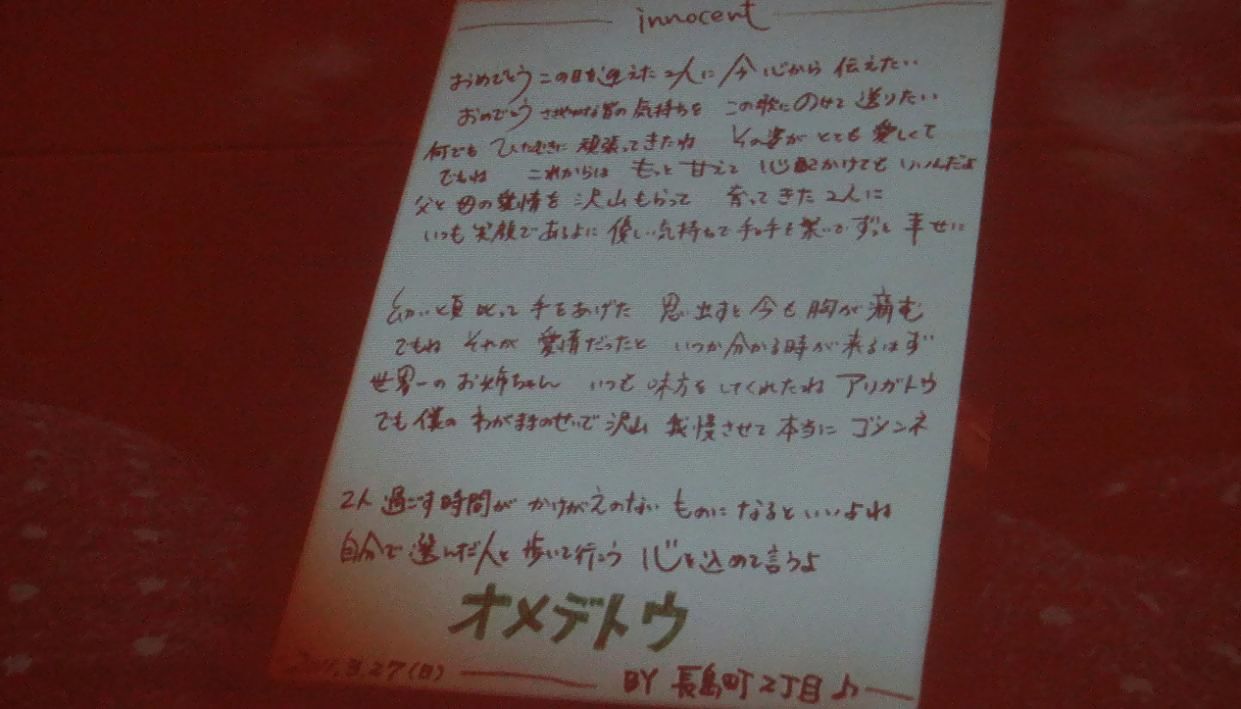 innocent
おめでとう この日を迎えた 2人に 今 心から 伝えたい
おめでとう ささやかな 気持ちを この歌に のせて 送りたい
何でも ひたむきに 頑張ってきたね その姿が とても 愛しくて
でもね これからは もっと 甘えて 心配かけても いいんだよ
父と 母の 愛情を 沢山 もらって 育ってきた 2人に
いつも 笑顔で あるように 優しい 気持ちで 手と手を 繋いで ずっと 幸せに
幼い頃 叱って 手をあげた 思い出すと 今も 胸が 痛む
でもね それが 愛情だったと いつか 分かる 時が 来るはず
世界一の お姉ちゃん いつも 味方を してくれたね アリガトウ
でも 僕の わがままのせいで 沢山 我慢させて 本当に ゴメンネ
2人 過ごす 時間が かけがえのない ものに なると いいよね
自分で 選んだ 人と 歩いて行こう 心を 込めて 言うよ
オメデトウ
3.27(日) BY 長島町2丁目♪